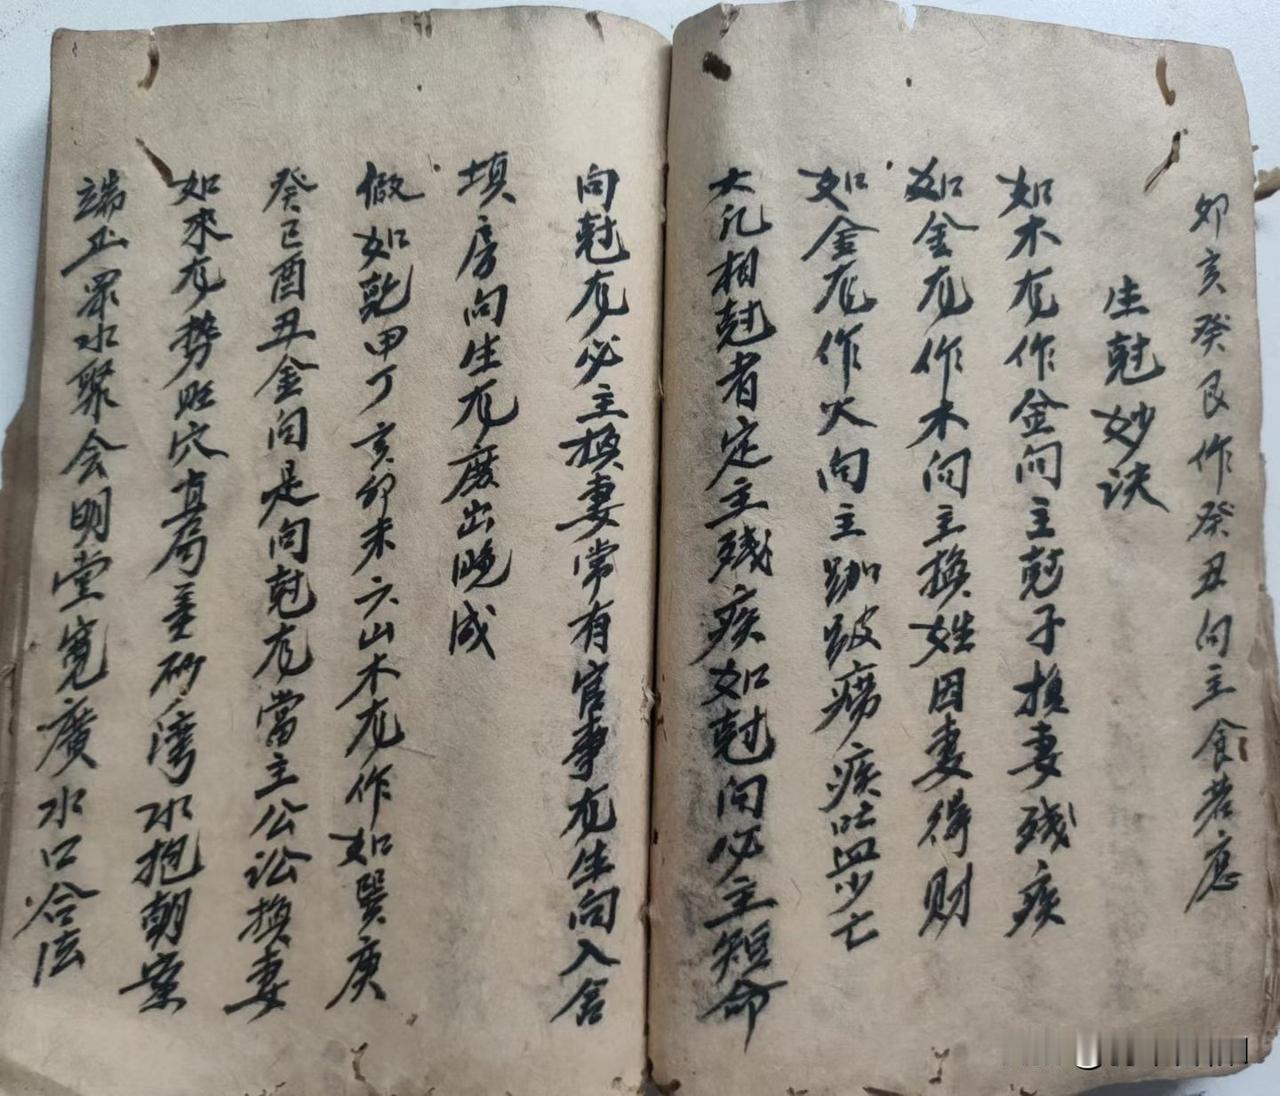 卯亥癸艮作癸丑向主食若應
生尅妙诀
如木龙作金向主尅子换妻残疾
如金龙作木向主换姓因妻得财
如金龙作火向主跏跛痨疾吐血少亡
大凡相尅者定主残疾如尅向必主短命
向尅龙必主换妻常有官事龙生向入舍
填房向生龙废出晚成
假如乾甲丁亥卯未六山木龙作如巽庚
癸巳酉丑金向是向尅龙當主公讼换妻
如來龙势旺穴真局美砂湾水抱朝案
端正眾水聚会明堂寛廣水口合法